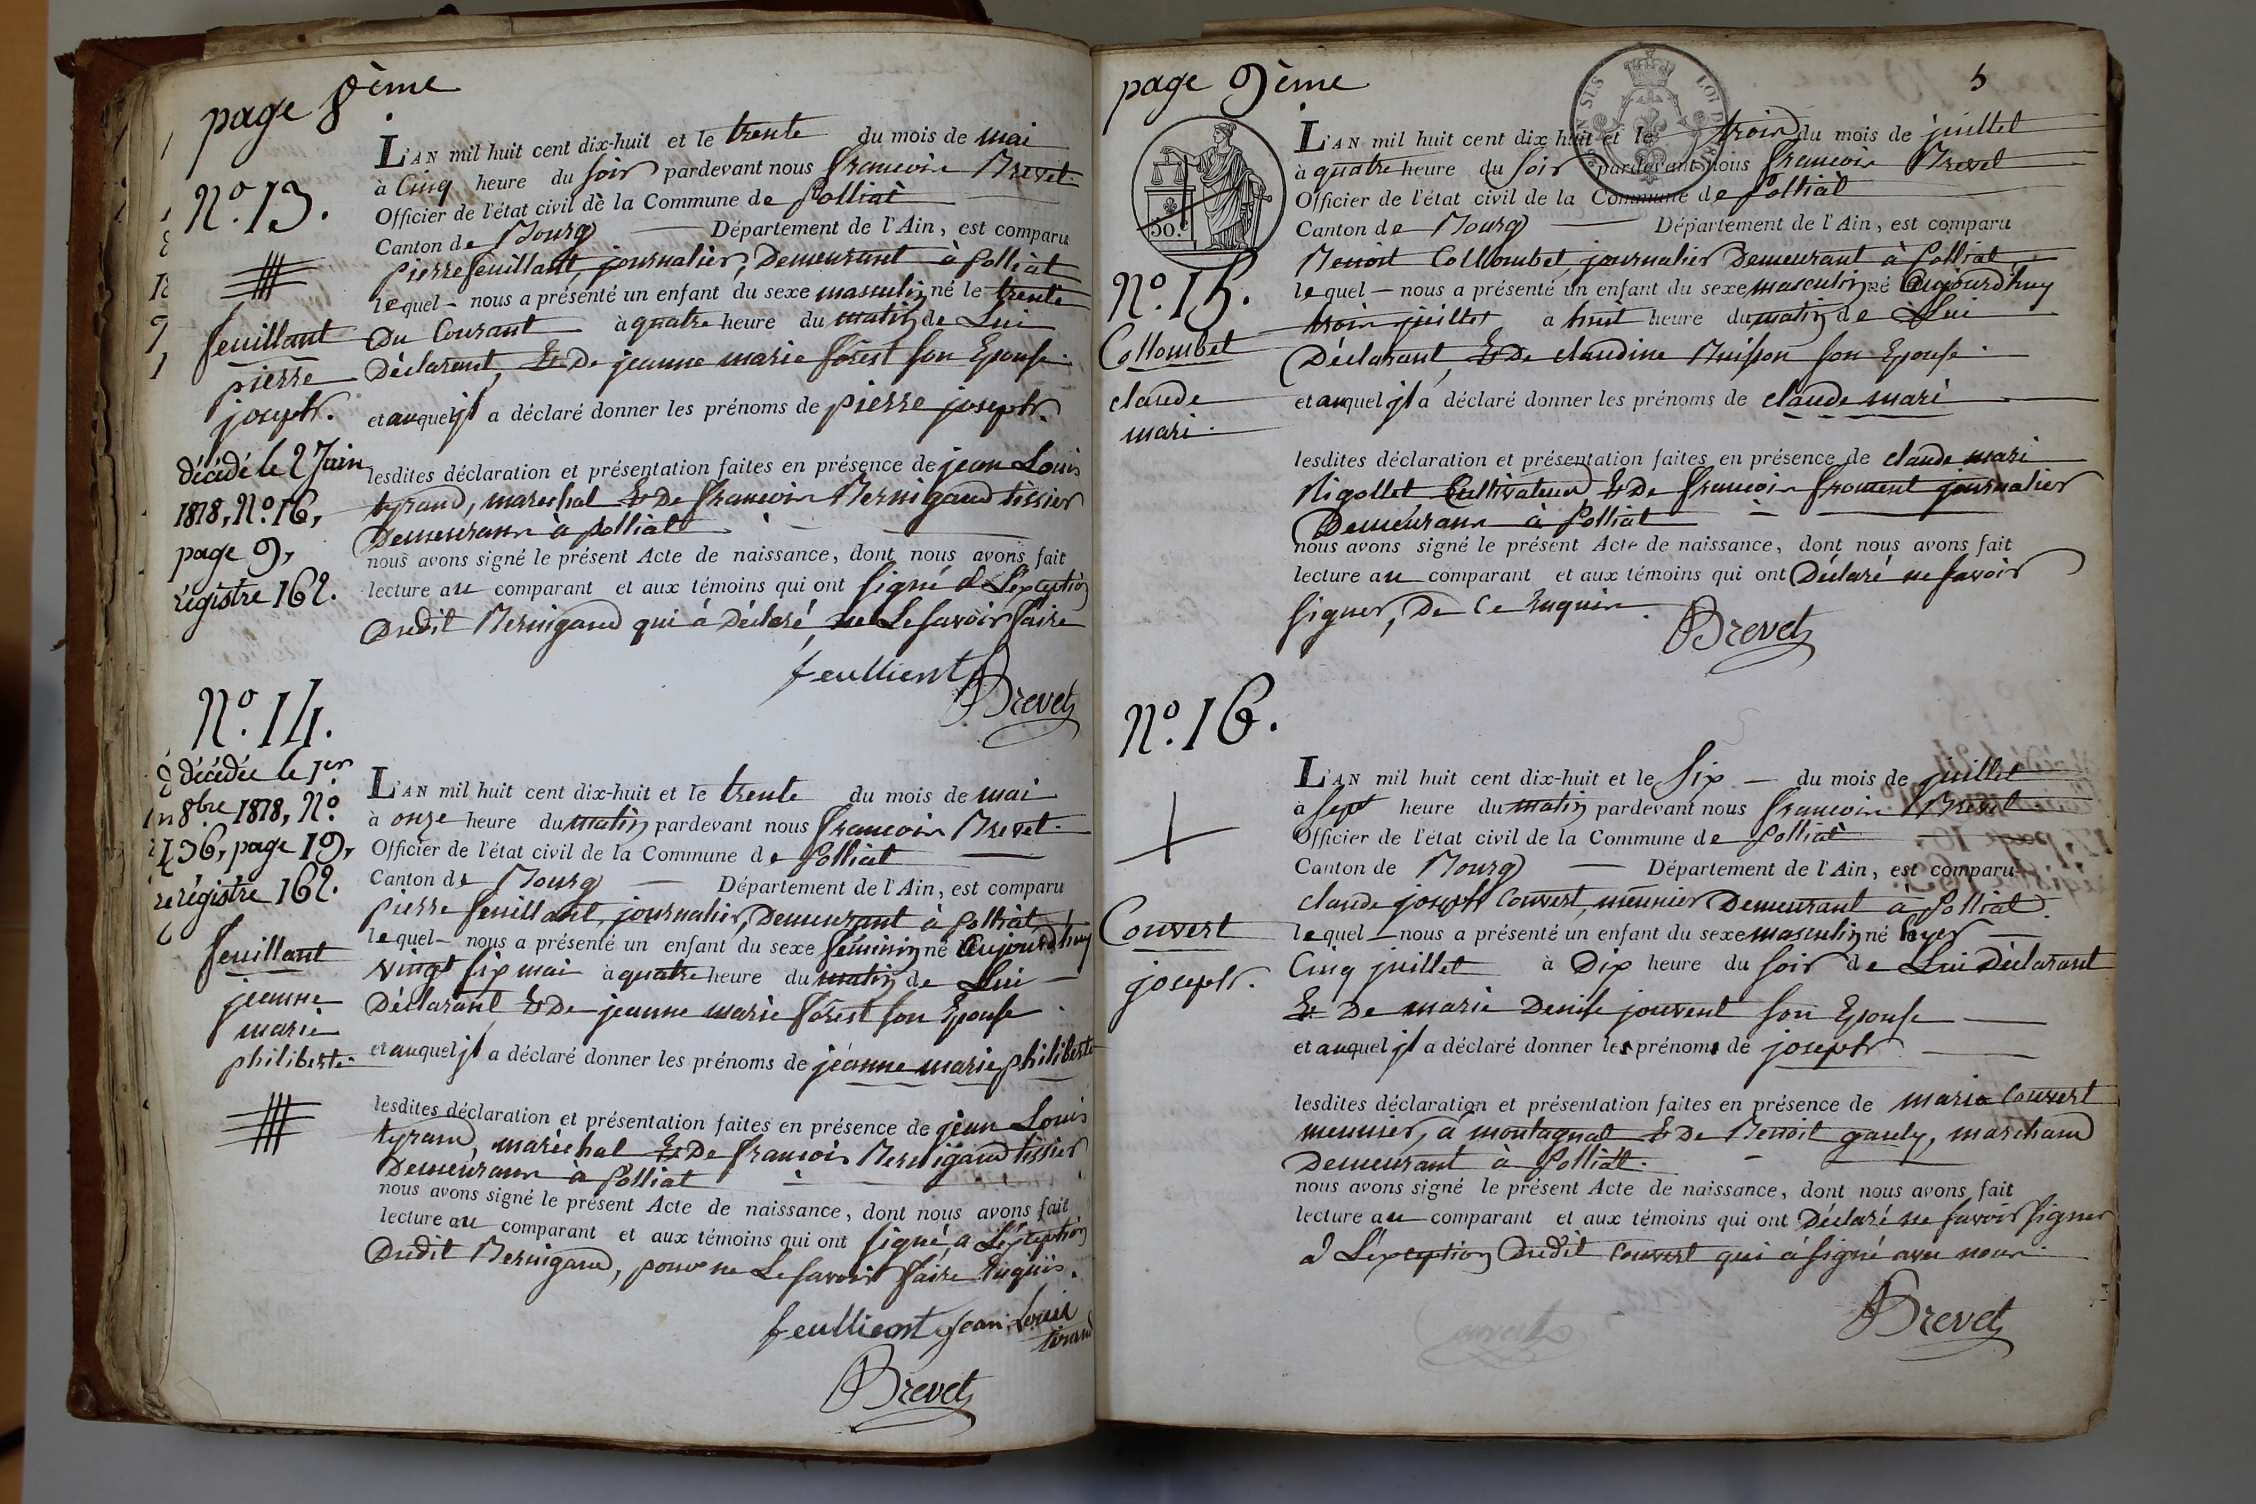 page 8ème
No. 13.
L'AN mil huit cent dix-huit et le trente du mois de mai
à Cinq heure du soir pardevant nous françois Brevet
Officier de l'état civil de la Commune de Polliat
Canton de Bourg Département de l'Ain, est comparu
pierre feuillant, journalier, Demeurant à Polliat
lequel nous a présenté un enfant du sexe masculin né le trente
Du Courant à quatre heure du matin de Lui
Déclarent, & De jeanne marie forest son Epouse.
et auquel jl a déclaré donner les prénoms de pierre joseph.
lesdites déclaration et présentation faites en présence de jean Louis
tyrand, marechal & De françois Bernigaud tissier
Demeurans à polliat
nous avons signé le présent Acte de naissance, dont nous avons fait
lecture au comparant et aux témoins qui ont signé à L'exception
Dudit Bernigaud qui à Déclaré, ne Le savoir faire
feullient Brevet
feuillant
pierre
joseph.
décédé le 2 Juin
1818, No. 16,
page 9,
régistre 162.
No. 14.
décédée le 1er
8bre 1818, No
36, page 19,
régistre 162.
feuillant
jeanne
marie
philiberte.
L'AN mil huit cent dix-huit et le trente du mois de mai
à onze heure du matin pardevant nous françois Brevet
Officier de l'état civil de la Commune de Polliat
Canton de Bourg Département de l'Ain, est comparu
pierre feuillant, journalier, Demeurant à Polliat,
lequel nous a présenté un enfant du sexe féminin né Aujourd'huy
vingt six mai à quatre heure du matin de Lui
Déclarant, & De jeanne marie forest son Epouse
et auquel jl a déclaré donner les prénoms de jeanne marie philiberte
lesdites déclaration et présentation faites en présence de jean Louis
tyrand, maréchal & De françois Bernigaud tissier
Demeurans à Polliat
nous avons signé le présent Acte de naissance, dont nous avons fait
lecture au comparant et aux témoins qui ont signé, a L'exception
Dudit Bernigaud, pour ne Le savoir faire Enquis.
feullient Jean Louis
tirand
Brevet
page 9ème
5
50.
No. 15.
Collombet
claude
mari.
L'AN mil huit cent dix huit et le trois du mois de juillet
à quatre heure du soir pardevant nous françois Brevet
Officier de l'état civil de la Commune de Polliat
Canton de Bourg Département de l'Ain, est comparu
Benoit Collombet, journalier Demeurant à Polliat,
lequel nous a présenté un enfant du sexe masculin né Aujourd'huy
trois juillet à huit heure du matin de Lui
Déclarant, & De claudine Buisson son Epouse.
et auquel jl a déclaré donner les prénoms de claude mari
lesdites déclaration et présentation faites en présence de claude mari
Rigollet Cultivateur & De françois froment journalier
Demeurans à Polliat
nous avons signé le présent Acte de naissance, dont nous avons fait
lecture au comparant et aux témoins qui ont Déclaré ne savoir
signer, De ce Enquis
Brevet
No. 16.
Couvert
joseph.
L'AN mil huit cent dix-huit et le six du mois de juillet
à sept heure du matin pardevant nous françois Brevet
Officier de l'état civil de la Commune de Polliat
Canton de Bourg Département de l'Ain, est comparu
claude joseph Couvert, meunier Demeurant à Polliat.
lequel nous a présenté un enfant du sexe masculin né hyer
Cinq juillet à Dix heure du soir de Lui Déclarant
& De marie Denise jouvent son Epouse
et auquel jl a déclaré donner les prénoms de joseph
lesdites déclaration et présentation faites en présence de marie Couvert
meunier, à montagnat & De Benoit gauly, marchand
Demeurant à Polliat.
nous avons signé le présent Acte de naissance, dont nous avons fait
lecture au comparant et aux témoins qui ont Déclaré ne savoir signer
à L'exception Dudit Couvert qui à signé avec nous.
Couvert
Brevet